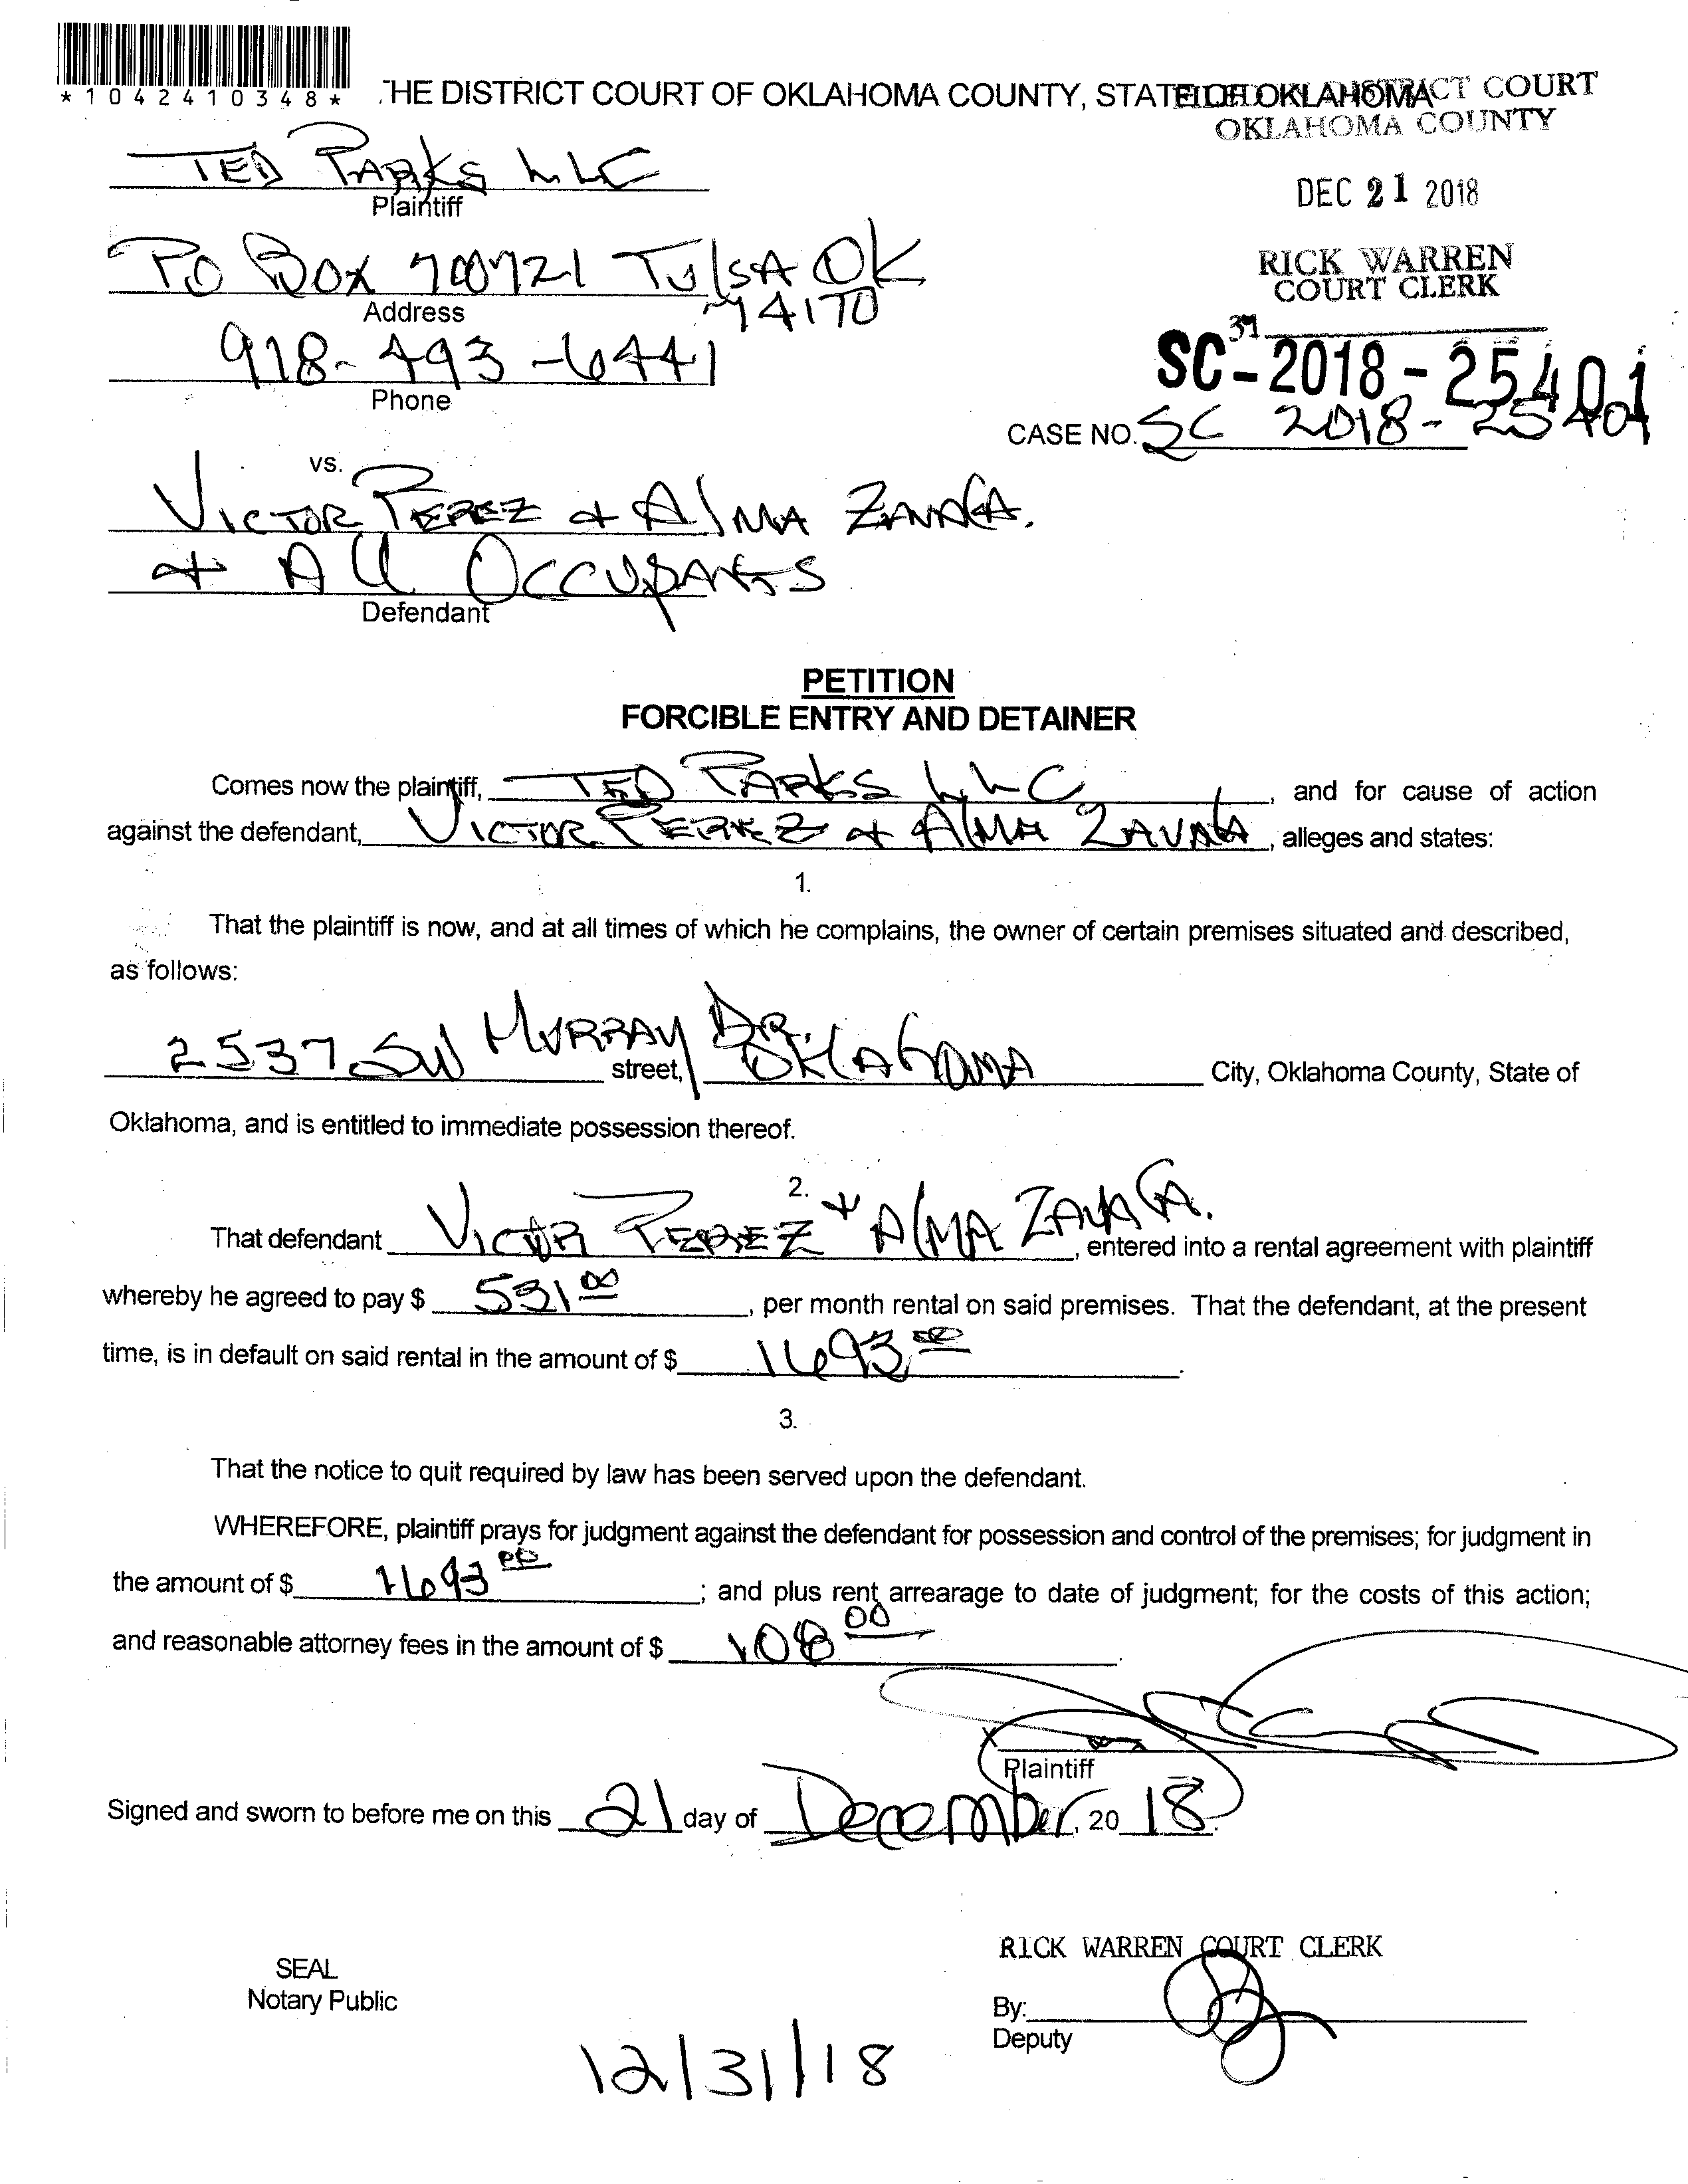 *1042410348*
THE DISTRICT COURT OF OKLAHOMA COUNTY, STATE OF OKLAHOMA
FILED DISTRICT COURT
OKLAHOMA COUNTY
TED PARKS LLC
Plaintiff
DEC 21 2018
PO BOX 700721 TulsA OK
74170
Address
RICK WARREN
COURT CLERK
918-493-6441
Phone
39
SC-2018-25401
CASE NO. SC 2018-25401
vs.
VICTOR PEREZ + AlMA ZAVALA.
+ All OCCUPANTS
Defendant
PETITION
FORCIBLE ENTRY AND DETAINER
Comes now the plaintiff, TED PARKS LLC, and for cause of action
against the defendant, VICTOR PEREZ + AlMA ZAVALA, alleges and states:
1.
That the plaintiff is now, and at all times of which he complains, the owner of certain premises situated and described,
as follows:
2537 SW MURRAY DR. street, OKLAHOMA City, Oklahoma County, State of
Oklahoma, and is entitled to immediate possession thereof.
2.
That defendant VICTOR PEREZ + AlMA ZAVALA., entered into a rental agreement with plaintiff
whereby he agreed to pay $ 531 00, per month rental on said premises. That the defendant, at the present
time, is in default on said rental in the amount of $ 1693.00.
3.
That the notice to quit required by law has been served upon the defendant.
WHEREFORE, plaintiff prays for judgment against the defendant for possession and control of the premises; for judgment in
the amount of $ 1693 00; and plus rent arrearage to date of judgment; for the costs of this action;
and reasonable attorney fees in the amount of $ 108 00.
X
Plaintiff
Signed and sworn to before me on this 21 day of December, 20 18.
RICK WARREN COURT CLERK
SEAL
Notary Public
By:
Deputy
12/31/18